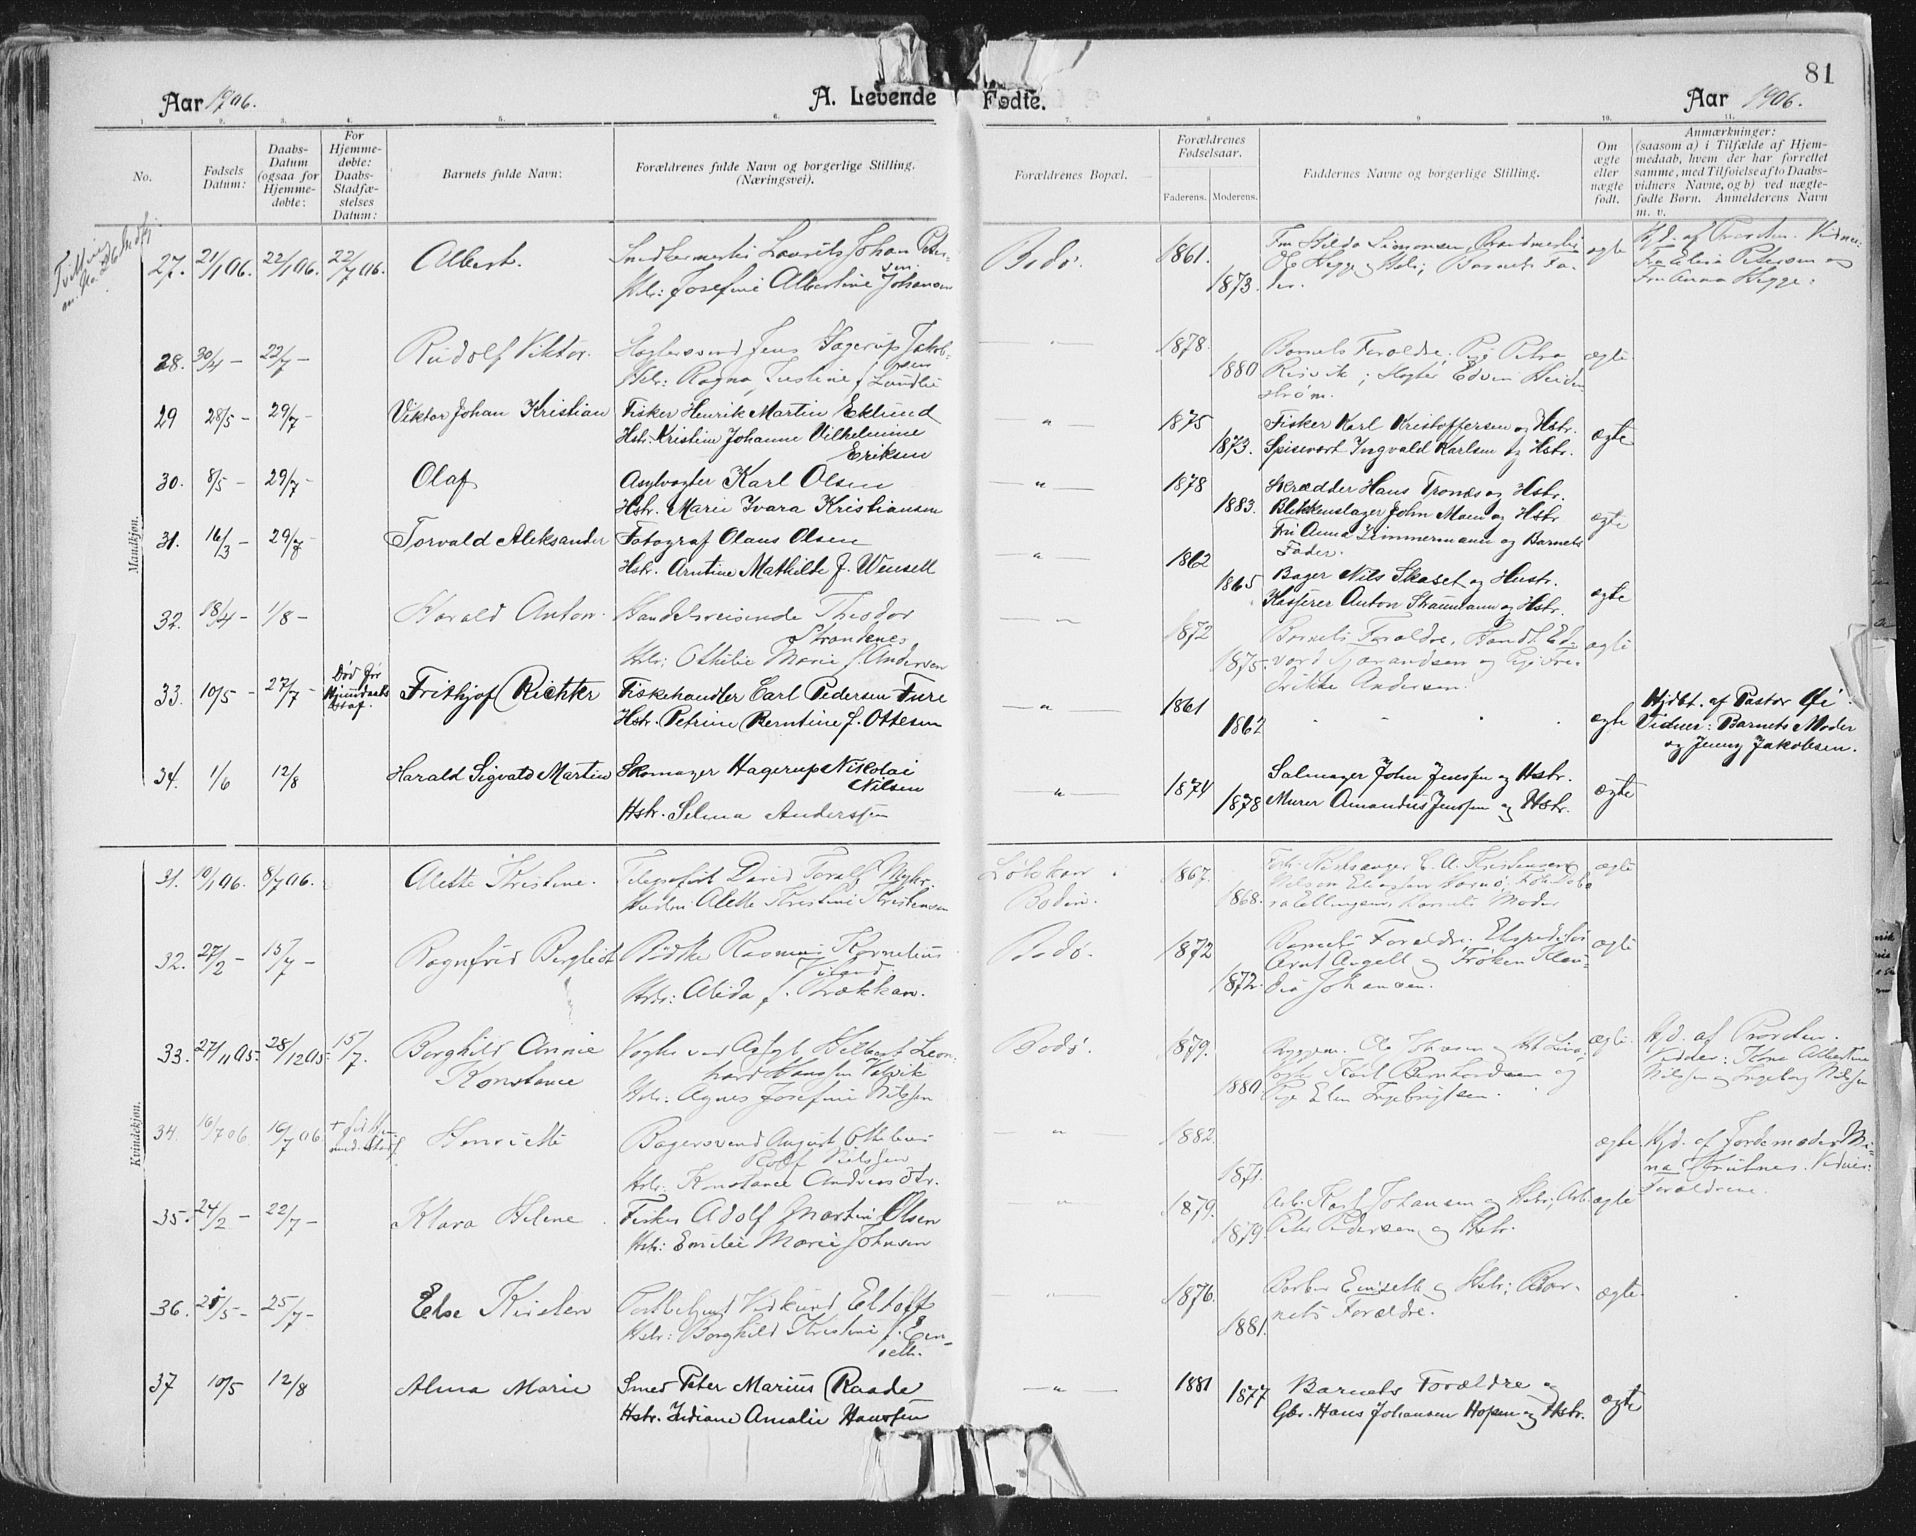 81
Aar 1906.
A. Levende Fødte.
Aar 1906.
1. 2. 3. 4. 5. 6. 7. 8. 9. 10. 11.
No.
Fødsels Datum:
Daabs-Datum (ogsaa for Hjemme-døbte:
For Hjemme-døbte: Daabs-Stadfæ-stelses Datum:
Barnets fulde Navn:
Forældrenes fulde Navn og borgerlige Stilling. (Næringsvei).
Forældrenes Bopæl.
Forældrenes Fødselsaar.
Faderens. Moderens.
Faddernes Navne og borgerlige Stilling.
Om ægte eller nægte født.
Anmærkninger: (saasom a) i Tilfælde af Hjem-medaab, hvem der har forrettet samme, med Tilføielse af to Daabs-vidners Navne, og b) ved nægte-fødte Børn. Anmelderens Navn m. v.
Mandkjøn.
27. 21/1 06. 22/1 06. 22/7 06. Albert.
Snedkermester Laurits Johan Petersen
Hstr: Josefine Albertine Johansen
Bodø. 1861. 1873.
Fru Hilda Simonsen, Brandmester
Ole Hegge og Hstr; Barnets Fa-
der.
ægte
Hjd. af Provsten. Vidner:
Fru Elisa Petersen og
Fru Anna Hegge.
28. 30/4 – 22/7 – Rudolf Viktor.
Jens Hagerup Jakob-
sen
Hstr: Ragna Justine f. Lundli
— " — 1878. 1880
Barnets Forældre, Pige Petra
Risvik; Edvin Heiden
strøm.
ægte
29 28/5 – 29/7 – Viktor Johan Kristian
Fisker Henrik Martin Eklund
Hstr. Kristine Johanne Vilhelmine
Eriksen
— " — 1875 1873.
Fisker Karl Kristoffersen og Hstr.
Spisevert Ingvald Karlsen og Hstr.
ægte
30. 8/5 – 29/7 – Olaf
Asylvogter Karl Olsen
Hstr. Marie Ivara Kristiansen
— " — 1878 1883.
Skrædder Hans Tronæs og Hstr.
Blikkenslager John Moen og Hstr
Fru Anna Zimmermann og Barnets
Fader.
ægte
31. 16/3 – 29/7 – Torvald Aleksander
Fotograf Olaus Olsen
Hstr. Arntine Mathilde f. Wensell
— " — 1862 1865
Bager Nils Skaset og Hustr.
Kasserer Anton Straumann og Hstr.
ægte
32. 18/4 – 1/8 – Harald Anton.
Handelsreisende Theodor
Strandenes
Hstr; Othilie Marie f. Andersen
— " — 1872 1875.
Barnets Forældre, Handl. Ed-
vard Tjærandsen og
Drikke Andersen.
ægte
33. 10/5 – 27/7 – Død før Hjemmedaabs Stadf. Frithjof Richter
Fiskehandler Carl Pedersen Fure
Hstr. Petrine Berntine f. Ottesen
— " — 1861 1862
ægte
Hjdbt. af Pastor Øi.
Vidner: Barnets Moder
og Jenny Jakobsen.
34. 1/6 12/8 Harald Sigvald Martin
Skomager Hagerup Nikolai
Nilsen
Hstr. Selma Anderssen
— " — 1874 1878
Salmager John Jenssen og Hstr.
Murer Amandus Jenssen og Hstr.
ægte
Kvindekjøn.
31. 10/1 06. 8/7 06. Alette Kristine.
David Toralf Myhr.
Hustru Alette Kristine Kristensen
Løkekar i
Bodin.
1867. 1868.
Kirkesanger C. A. Kristensen
Barnets Moder
ægte
32. 27/2 – 15/7 – Ragnfrid Bergliot
Bødker Rasmus Kornelius
Hstr: Alida f. Trækkan.
Bodø. 1872 1872.
Barnets Forældre. Ekspeditør
Arnt Angell og Frøken Klau-
dia Johansen.
ægte
33. 27/11 05. 28/12 05. 15/7. Borghild Annie
Konstance
Vogter ved Hilbert Leon-
hard Hanssen Valvik
Hstr: Agnes Josefine Nilssen
Bodø. 1879. 1880
Ole Johansen og
Karl Bernhardsen og
Pige Elen Ingebrigtsen.
ægte
Hjd. af Provsten.
Vidner: Kona Albertine
Nilssen og Ingeborg Nilssen
34. 16/7 06 16/7 06. Henriette
Bagersvend August
Rolf Nilssen
Hstr. Konstance Andreasdtr.
— " — 1882. 1871.
ægte
Hjd. af Jordemoder Mi-
na. Vidner:
Forældrene.
35. 24/2 – 22/7 – Klara Helene.
Fisker Adolf Martin Olsen
Hstr: Emilie Marie Johnsen
— " — 1879. 1879
Arb. Karl Johansen og Hstr; Arb.
Peter Pedersen og Hstr.
ægte
36. 25/5 – 25/7 – Else Kirsten
Postbetjent Vidkund Eltoft
Hstr: Borghild Kristine f. Ein-
seth.
— " — 1876. 1881.
Barber Einseth og Hstr; Bar-
nets Forældre.
ægte.
37 10/5 12/8 Alma Marie
Smed Peter Marius Raade
Hstr. Indiane Amalie Hanssen
— " — 1881 1877
Barnets Forældre og
Gbr. Hans Johansen Hopen og Hstr.
ægte